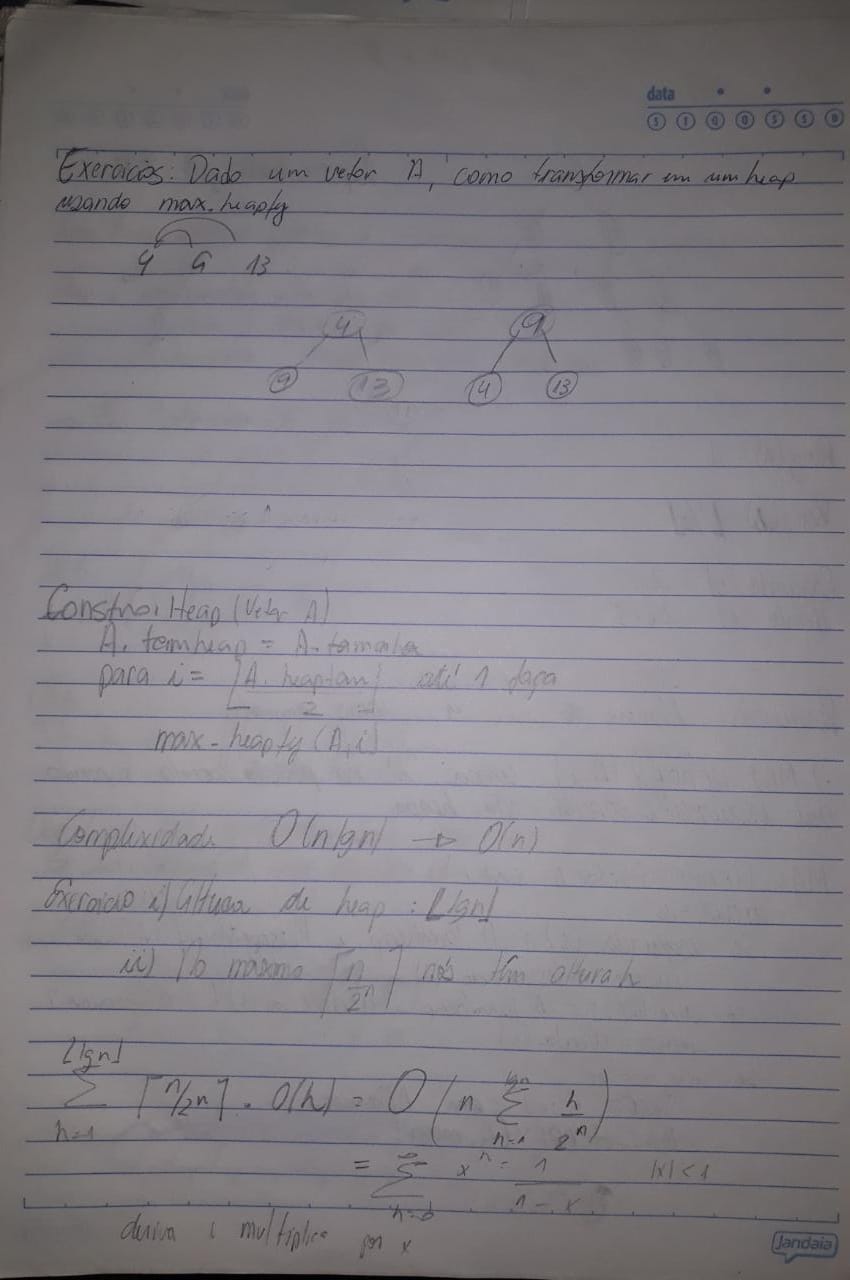 data
S T Q Q S S D
Exercicios: Dado um vetor A, como transformar em um heap
usando max-heapfy
4 9 13
4 9
9 13 4 13
Constroi Heap (Vetor A)
A. tamheap = A. tamanho
para i = ⌊A. heaptam / 2⌋ até 1 faça
max-heapfy (A, i)
Complexidade O(n lgn) → O(n)
Exercicio i) altura de heap : ⌊lgn⌋
ii) No máximo ⌈n/2^h⌉ nós têm altura h
⌊lgn⌋
∑ ⌈n/2^h⌉ . O(h) = O (n ∑ h/2^h)
h=1 lgn h=1
= ∑ x^n = 1/(1-x) |x| < 1
∞ n=0
deriva e multiplica por x
Jandaia